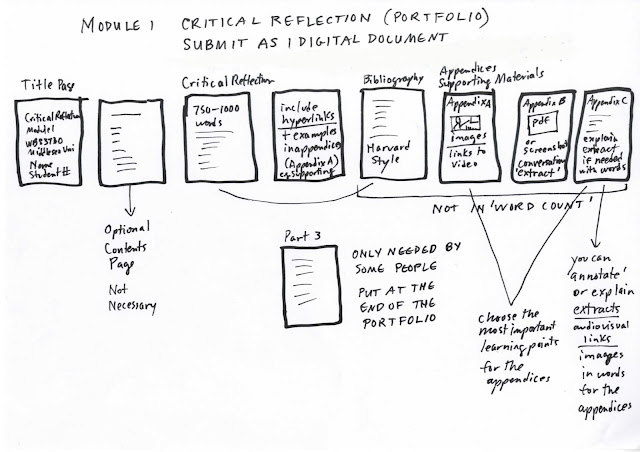 MODULE 1 CRITICAL REFLECTION (PORTFOLIO)
SUBMIT AS 1 DIGITAL DOCUMENT
Title Page
Critical Reflection
Module 1
Middlesex Uni
Name
Student #
Optional
Contents
Page
Not
Necessary
Critical Reflection
750-1000
words
include
hyperlinks
+ examples
in appendices
(Appendix A)
eg. supporting
Bibliography
Harvard
Style
Appendices
Supporting Materials
Appendix A
images
links to
video
Appendix B
pdf
or
screenshot
conversation
'extract'
Appendix C
explain
extract
if needed
with words
NOT IN 'WORD COUNT'
Part 3
ONLY NEEDED BY
SOME PEOPLE
PUT AT THE
END OF THE
PORTFOLIO
Choose the
most important
learning points
for the
appendices
you can
'annotate'
or explain
extracts
audiovisual
links
images
in words
for the
appendices